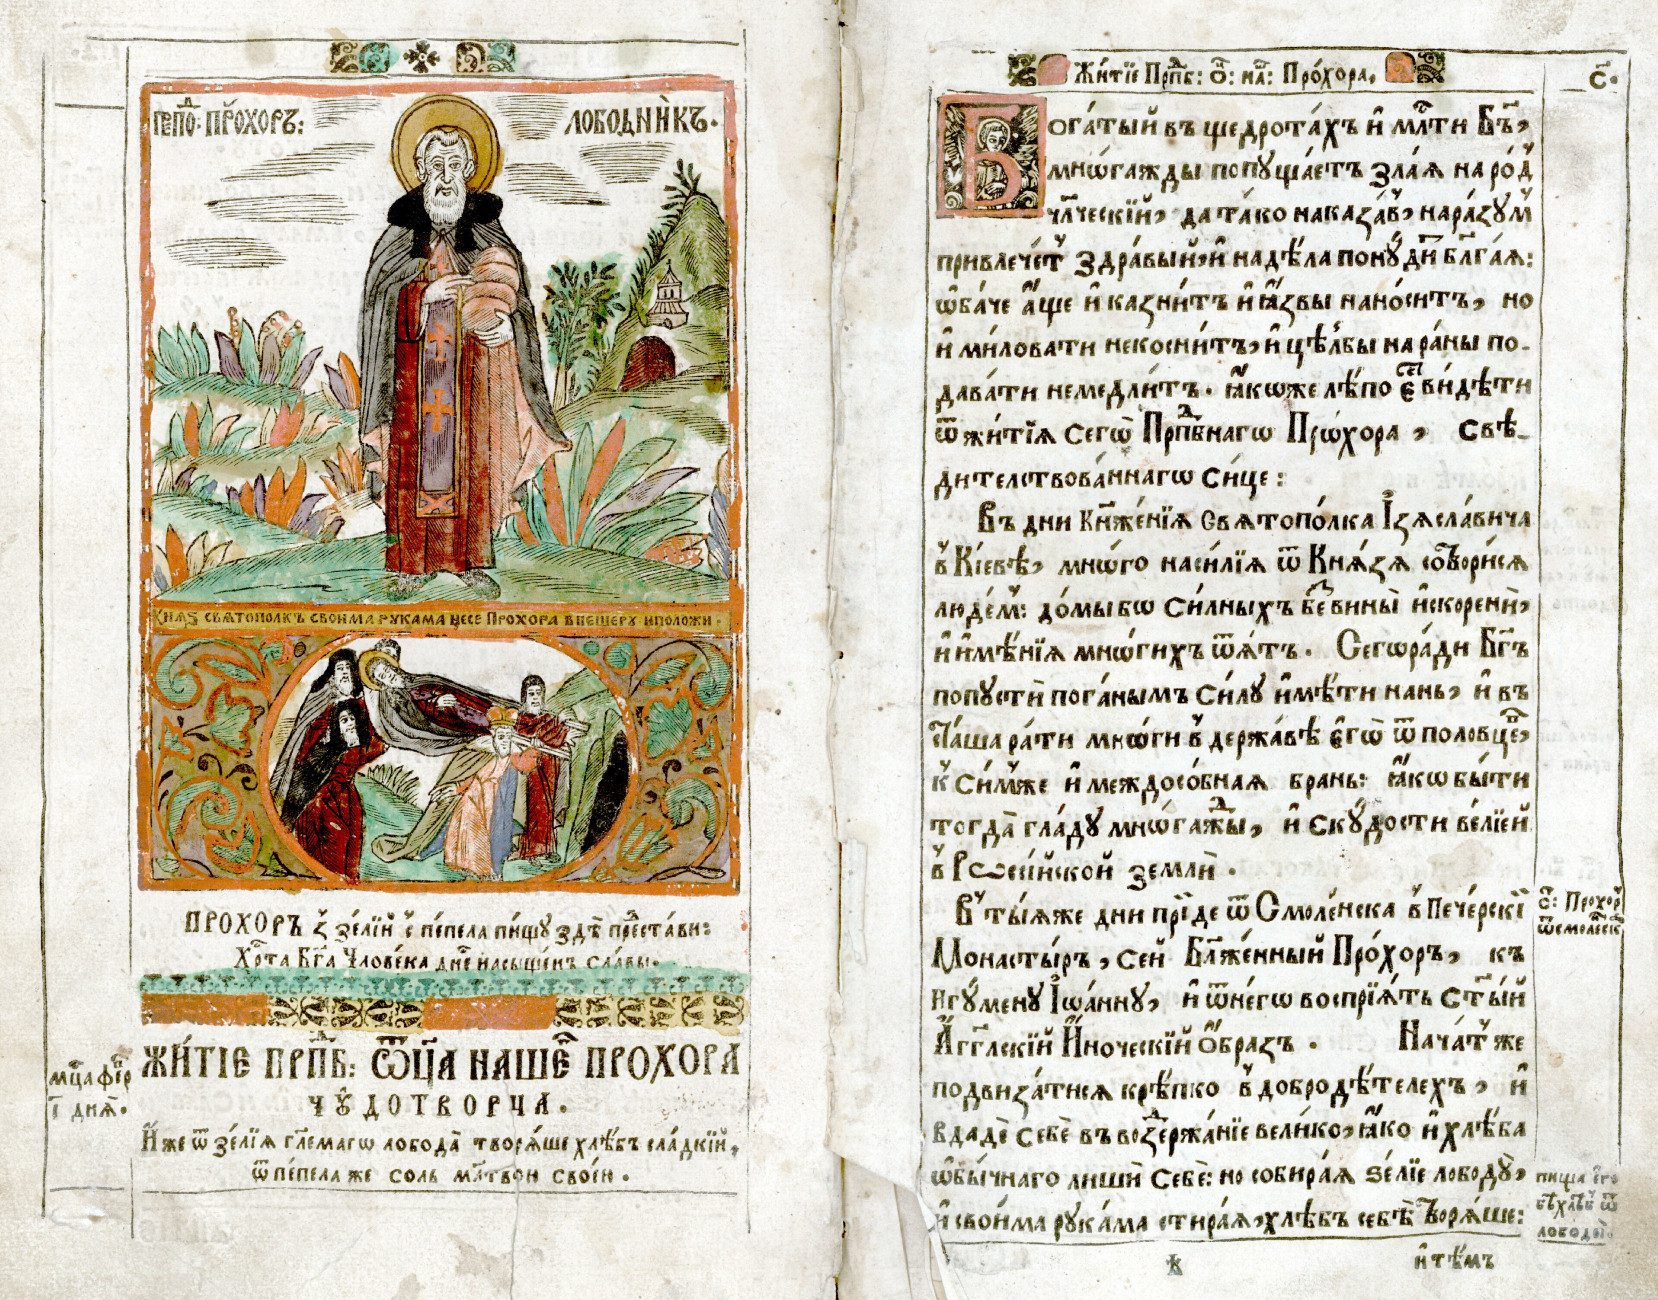 ПРПⷣО: ПРОХОРЪ:
ЛОБОДНИКЪ.
КНЯЗ СВЯТОПОЛКЪ СВОИМА РУКАМА НЕСЕ ПРОХОРА В ПЕЩЕРУ И ПОЛОЖИ.
ПРОХОРЪ Ꙁ̾ зе́лїй с̾ пе́пела пи́щу здѣ̀ прⷭ҇та́ви:
Хрⷭ҇та̀ Бг҃а Человѣ́ка дн҃е насы́щенъ сла́вы.
ЖИ́ТІЕ ПРПⷣБ: Ѿ҆Ц҃А НАШЕⷢ҇ ПРОХОРА
ЧꙊДОТВОРЦА.
мцⷭ҇а феⷡ҇р
і҃ дня̀.
И҆́же ѿ зе́лїя гл҃емагѡ лобода̀ творя́ше хлѣ́бъ сла́дкїй,
ѿ пе́пела же соль мл҃твои свое́ю.
Жи́тїе Прпⷣб: Ѻ҃: на҃: Про́хора.
С҃.
Бога́тый въ щедрота́хъ и҆ млⷭ҇ти Бг҃ъ,
мнѡ́гажды попꙋща́етъ зла́я на ро́д
чл҃ческїй, да та́ко наказа́в, на ра́зꙋм
привлече́т здра́вый, и҆ на дѣ́ла понꙋ́дит бл҃га́я:
ѡ҆ба́че а҆́ще и҆ казни́тъ и҆ ꙗ҆́звы нано́ситъ, но
и҆ ми́ловати не косни́тъ, и҆ цѣлбы̀ на ра́ны по-
дава́ти не ме́длитъ. ꙗ҆́коже лѣ́по є҆сть ви́дѣти
ѿ жи́тїя сегѡ̀ Прпⷣбнагѡ Прѡ́хора, свѣ-
дителствова́ннагѡ си́це:
Въ дни Кн҃же́нїя Святопо́лка І҆зясла́вича
в̾ Кі́евѣ, мно́го наси́лїя ѿ Кня́зя сотвори́ся
лю́дем: до́мы бѡ си́лныхъ без вины̀ и҆скоренѝ,
и҆ и҆мѣ́нїя мнѡ́гихъ ѿя́тъ. Сегѡ̀ ра́ди Бг҃ъ
попꙋстѝ пога́нымъ си́лꙋ и҆мѣ́ти нань, и҆ въ
ста́ша ра́ти мнѡ́ги в̾ держа́вѣ є҆гѡ̀ ѿ половце,
к̾ си́мже и҆ междосо́бная брань: ꙗ҆́кѡ бы́ти
тогда̀ гла́дꙋ мнѡ́гажды, и҆ скꙋ́дости ве́лїей
в̾ Рѡссі́йской землѝ.
В̾ ты́яже дни прїи́де ѿ Смоле́нска в̾ Пече́рскї
Монасты́ръ, сей Бл҃же́нный Про́хоръ, къ
Игꙋ́менꙋ І҆ѡа́ннꙋ, и҆ ѿ негѡ воспрїя́тъ ст҃ы́й
А҆́гг҃лскїй И҆́ноческїй ѻ҆́бразъ. Нача́т же
подвиза́тися крѣ́пко в̾ добродѣ́телехъ, и҆
вдадѐ себѐ въ воздержа́нїе вели́ко, ꙗ҆́ко и҆ хлѣ́ба
ѡ҆бы́чнаго лишѝ себѐ: но собира́я зе́лїе лободꙋ̀,
и҆ свои́ма рꙋка́ма стира́я, хлѣ́бъ себѣ̀ творя́ше:
с҃: Про́хор
ѿ Смоле́нск
пища є҆го
бѣ хлѣ́б ѿ
лободы̀.
к
и҆ тѣ́мъ